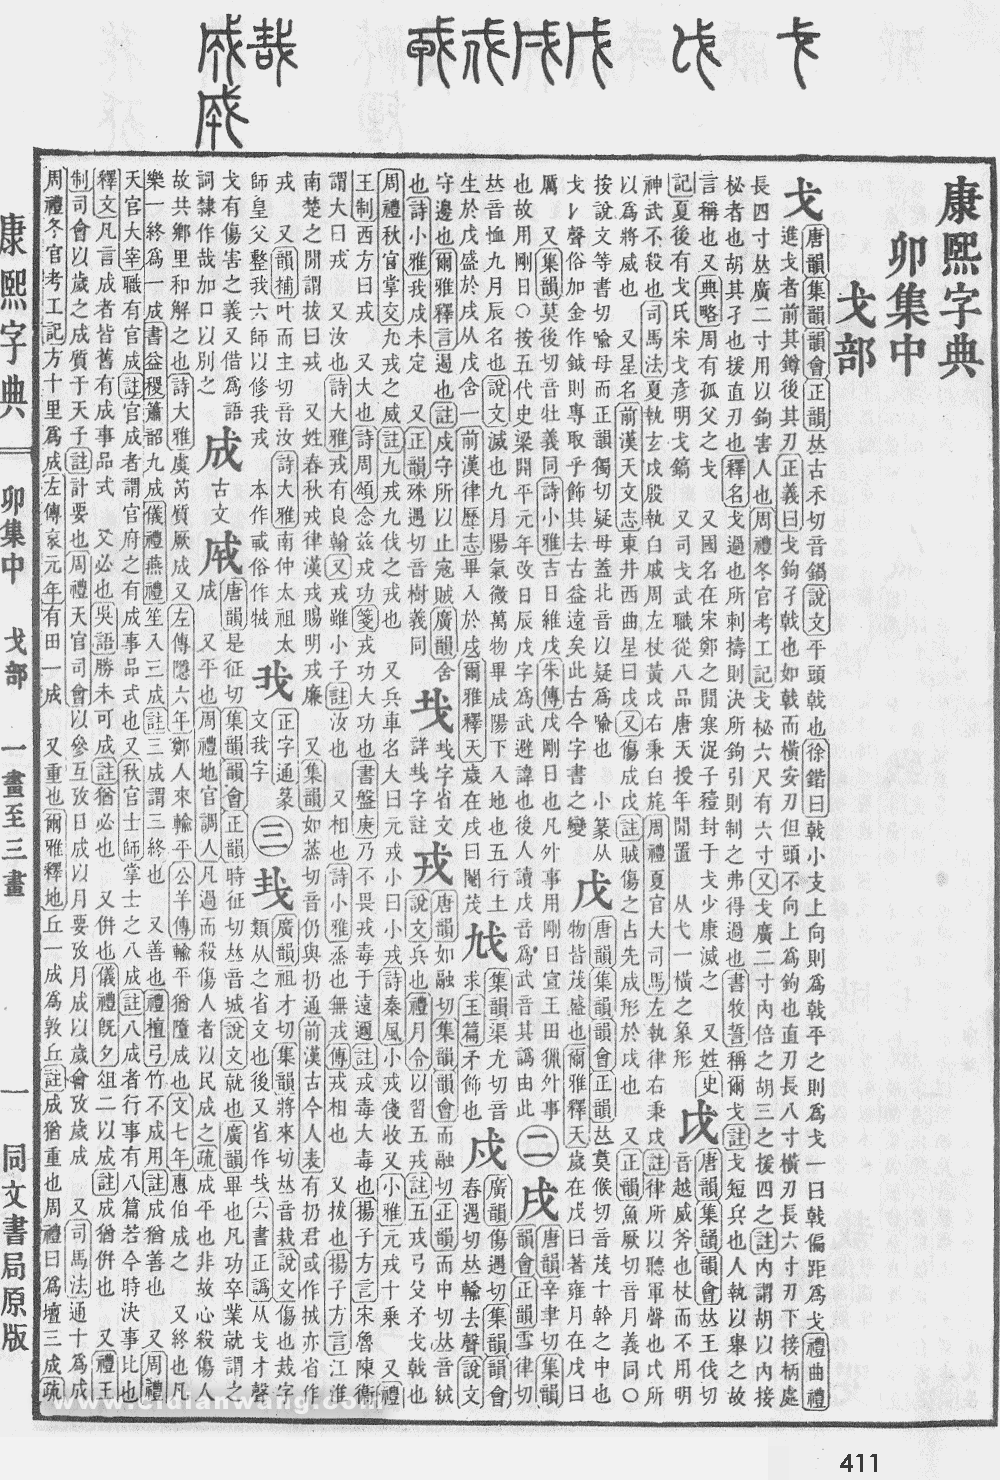 康熙字典
卯集中
戈部
戈唐韻集韻韻會正韻𠀤古禾切音鍋說文平頭戟也徐鍇曰戟小支上向則爲戟平之則爲戈一曰戟偏距爲戈禮曲禮
進戈者前其鐏後其刃正義曰戈鉤孑戟也如戟而橫安刃但頭不向上爲鉤也直刃長八寸橫刃長六寸刃下接柄處
長四寸𠀤廣二寸用以鉤害人也周禮冬官考工記戈柲六尺有六寸又戈廣二寸內倍之胡三之援四之註內謂胡以內接
柲者也胡其孑也援直刃也釋名戈過也所刺擣則決所鉤引則制之弗得過也書牧誓稱爾戈註戈短兵也人執以舉之故
言稱也又典略周有孤父之戈 又國名在宋鄭之閒寒浞子豷封于戈少康滅之 又姓史
記夏後有戈氏宋戈彥明戈鎬 又司戈武職從八品唐天授年閒置 从弋一橫之象形
戉唐韻集韻韻會𠀤王伐切
音越威斧也杖而不用明
神武不殺也司馬法夏執玄戉殷執白戚周左杖黃戉右秉白旄周禮夏官大司馬左執律右秉戉註律所以聽軍聲也戉所
以爲將威也 又星名前漢天文志東井西曲星曰戉又傷成戉註賊傷之占先成形於戉也 又正韻魚厥切音月義同○
按說文等書切喩母而正韻獨切疑母蓋北音以疑爲喩也 小篆从
戈乚聲俗加金作鉞則專取乎飾其去古益遠矣此古今字書之變
戊唐韻集韻韻會正韻𠀤莫候切音茂十幹之中也
物皆茂盛也爾雅釋天歲在戊曰著雍月在戊曰
厲 又集韻莫後切音牡義同詩小雅吉日維戊朱傳戊剛日也凡外事用剛日宣王田獵外事
也故用剛日○按五代史梁開平元年改日辰戊字爲武避諱也後人讀戊音爲武音其譌由此
二
戌唐韻辛聿切集韻
韻會正韻雪律切
𠀤音恤九月辰名也說文滅也九月陽氣微萬物畢成陽下入地也五行土
生於戊盛於戌从戊含一前漢律歷志畢入於戌爾雅釋天歲在戌曰閹茂
㦶集韻渠尤切音
求玉篇矛飾也
戍廣韻傷遇切集韻韻會
春遇切𠀤輸去聲說文
守邊也爾雅釋言遏也註戍守所以止寇賊廣韻舍
也詩小雅我戍未定 又正韻殊遇切音樹義同
𢦏𢦏字省文
詳𢦏字註
戎唐韻如融切集韻韻會而融切正韻而中切𠀤音絨
說文兵也禮月令以習五戎註五戎弓殳矛戈戟也
周禮秋官掌交九戎之威註九戎九伐之戎也 又兵車名大曰元戎小曰小戎詩秦風小戎俴收又小雅元戎十乘 又禮
王制西方曰戎 又大也詩周頌念茲戎功箋戎功大功也書盤庚乃不畏戎毒于遠邇註戎毒大毒也揚子方言宋魯陳衞
謂大曰戎 又汝也詩大雅戎有良翰又戎雖小子註汝也 又相也詩小雅烝也無戎傳戎相也 又拔也揚子方言江淮
南楚之閒謂拔曰戎 又姓春秋戎律漢戎賜明戎廉 又集韻如蒸切音仍與扔通前漢古今人表有扔君或作㧡亦省作
戎 又韻補叶而主切音汝詩大雅南仲太祖太
師皇父整我六師以修我戎 本作𢦦俗作㦴
𢦐正字通篆
文我字
三
𢦏廣韻祖才切集韻將來切𠀤音栽說文傷也𢦏字
類从之省文也後又省作𢦏六書正譌从戈才聲
戈有傷害之義又借爲語
詞隸作哉加口以別之
成古文𢦩唐韻是征切集韻韻會正韻時征切𠀤音城說文就也廣韻畢也凡功卒業就謂之
成 又平也周禮地官調人凡過而殺傷人者以民成之疏成平也非故心殺傷人
故共鄉里和解之也詩大雅虞芮質厥成又左傳隱六年鄭人來輸平公羊傳輸平猶隳成也文七年惠伯成之 又終也凡
樂一終爲一成書益稷簫韶九成儀禮燕禮笙入三成註三成謂三終也 又善也禮檀弓竹不成用註成猶善也 又周禮
天官大宰職有官成註官成者謂官府之有成事品式也又秋官士師掌士之八成註八成者行事有八篇若今時決事比也
釋文凡言成者皆舊有成事品式 又必也吳語勝未可成註猶必也 又倂也儀禮旣夕俎二以成註成猶倂也 又禮王
制司會以歲之成質于天子註計要也周禮天官司會以參互攷日成以月要攷月成以歲會攷歲成 又司馬法通十爲成
周禮冬官考工記方十里爲成左傳哀元年有田一成 又重也爾雅釋地丘一成爲敦丘註成猶重也周禮曰爲壇三成疏
康熙字典 卯集中 戈部 一畫至三畫 一 同文書局原版
www.cidianwang.com
411